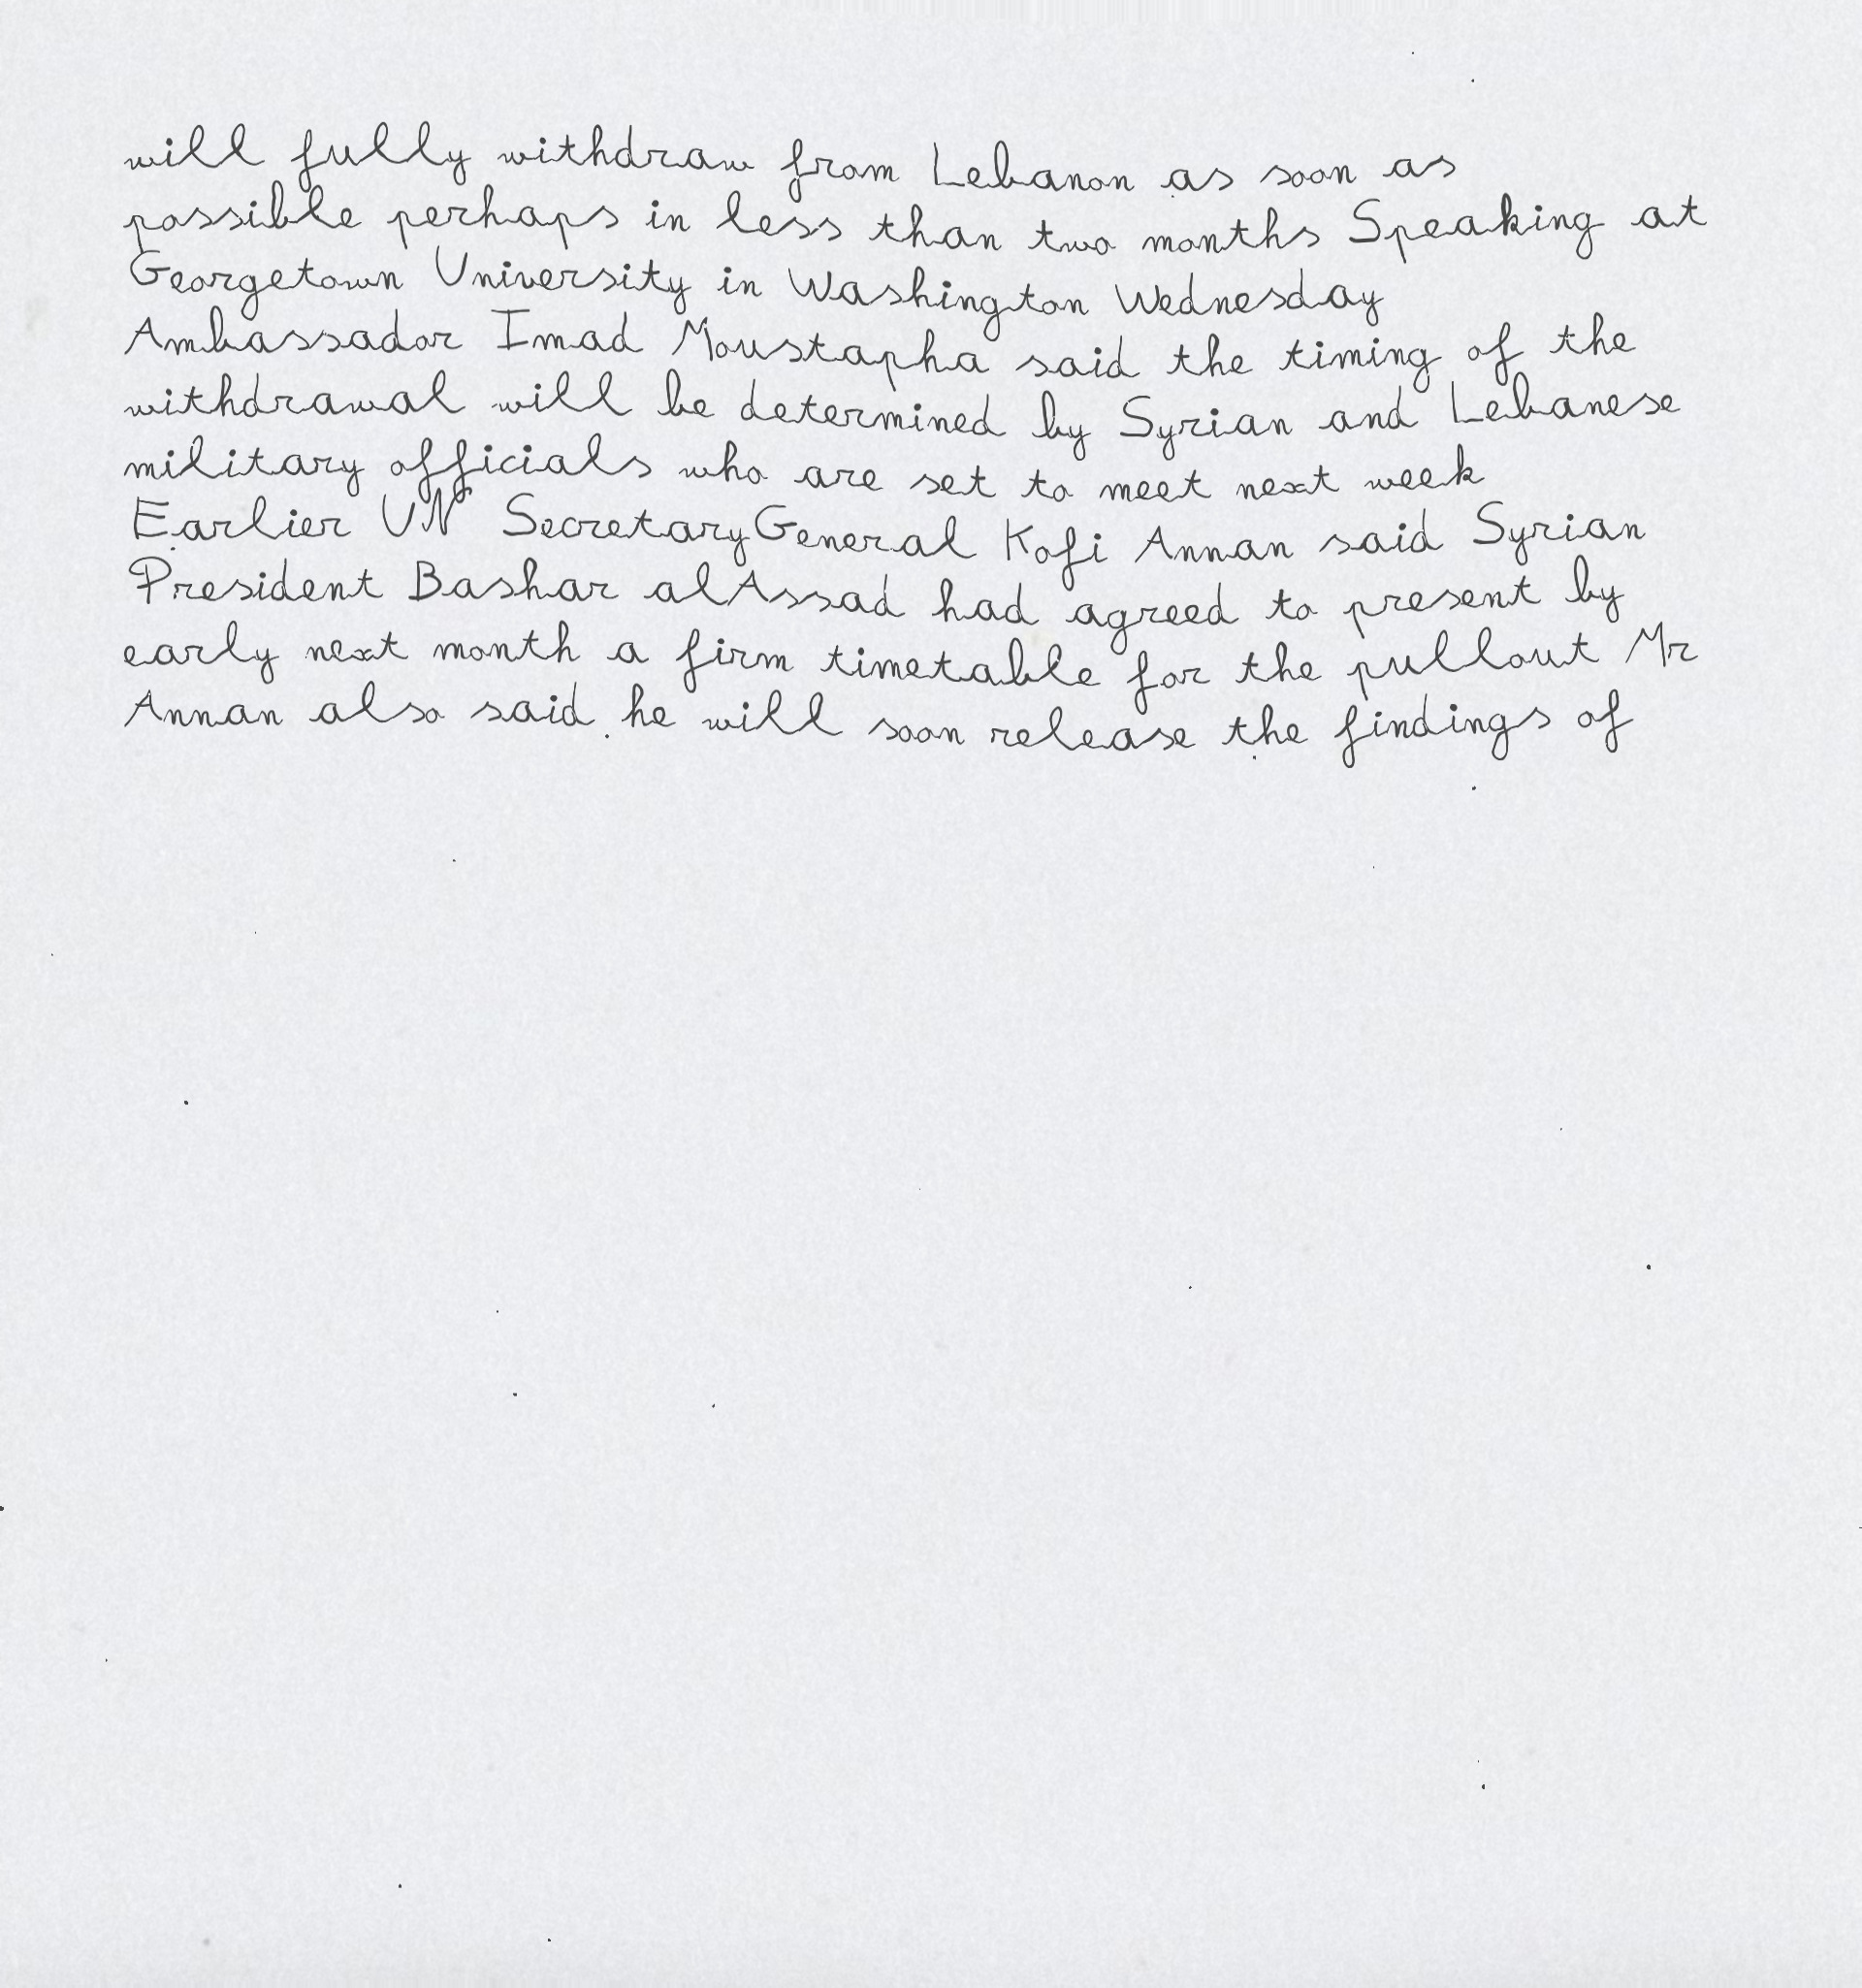 will fully withdraw from Lebanon as soon as
possible perhaps in less than two months Speaking at
Georgetown University in Washington Wednesday
Ambassador Imad Moustapha said the timing of the
withdrawal will be determined by Syrian and Lebanese
military officials who are set to meet next week
Earlier UN SecretaryGeneral Kofi Annan said Syrian
President Bashar alAssad had agreed to present by
early next month a firm timetable for the pullout Mr
Annan also said he will soon release the findings of